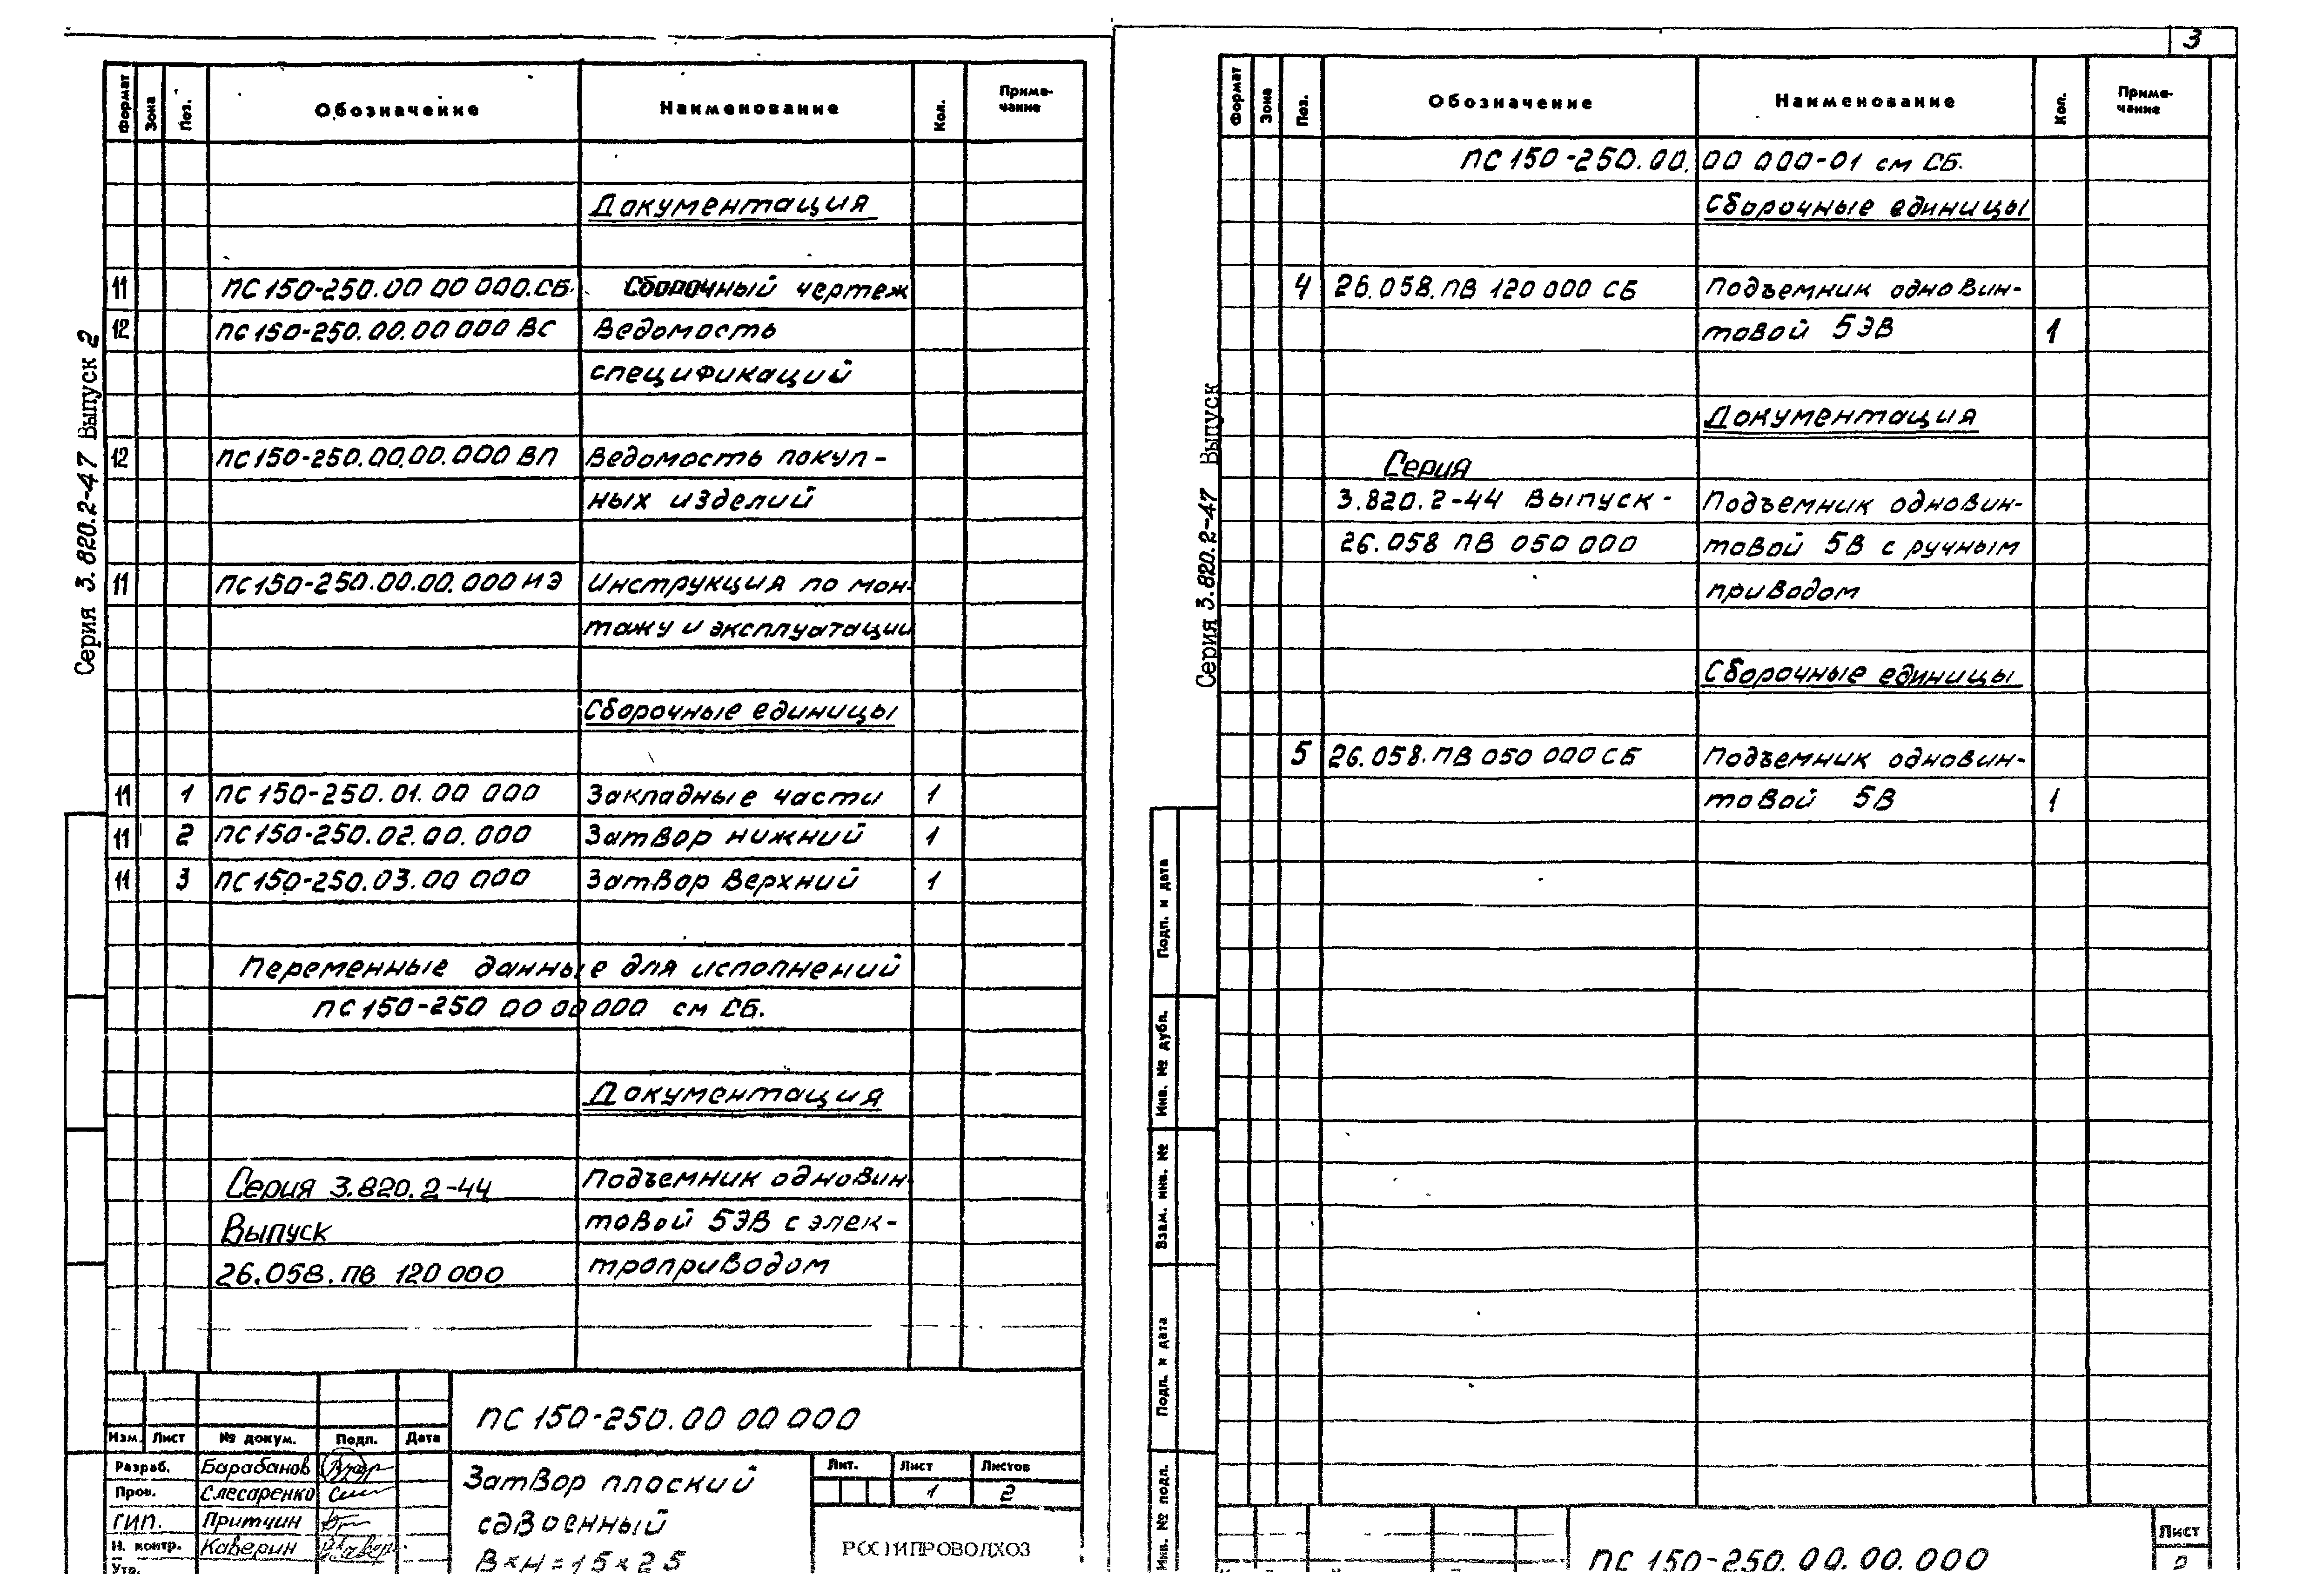 Серия 3.820.2-47 Выпуск 2
Формат Зона Поз. Обозначение Наименование Кол. Приме-
чание
Документация
11 ПС150-250.00 00 000.СБ. Сборочный чертеж
12 ПС150-250.00.00 000 ВС Ведомость
спецификаций
12 ПС150-250.00.00.000 ВП Ведомость покуп-
ных изделий
11 ПС150-250.00.00.000 ИЭ Инструкция по мон-
тажу и эксплуатации
Сборочные единицы
11 1 ПС150-250.01.00 000 Закладные части 1
11 2 ПС150-250.02.00.000 Затвор нижний 1
11 3 ПС150-250.03.00 000 Затвор верхний 1
Переменные данные для исполнений
ПС150-250 00 00 000 см СБ.
Документация
Серия 3.820.2-44 Подъемник одновин-
Выпуск товой 5ЭВ с элек-
26.058.ПВ 120 000 троприводом
ПС150-250.00 00 000
Изм. Лист № докум. Подп. Дата
Разраб. Барабанов
Пров. Слесаренко
ГИП. Притчин
Н. контр. Каверин
Утв.
Затвор плоский
сдвоенный
В×Н=15×25
Лит. Лист Листов
1 2
РОСГИПРОВОДХОЗ
3
Серия 3.820.2-47 Выпуск
Формат Зона Поз. Обозначение Наименование Кол. Приме-
чание
ПС150-250.00.00 000-01 см СБ.
Сборочные единицы
4 26.058.ПВ 120 000 СБ Подъемник одновин-
товой 5ЭВ 1
Документация
Серия
3.820.2-44 Выпуск- Подъемник одновин-
26.058 ПВ 050 000 товой 5В с ручным
приводом
Сборочные единицы
5 26.058.ПВ 050 000 СБ Подъемник одновин-
товой 5В 1
Подп. и дата
Инв. № дубл.
Взам. инв. №
Подп. и дата
Инв. № подл.
ПС150-250.00.00.000
Лист
2